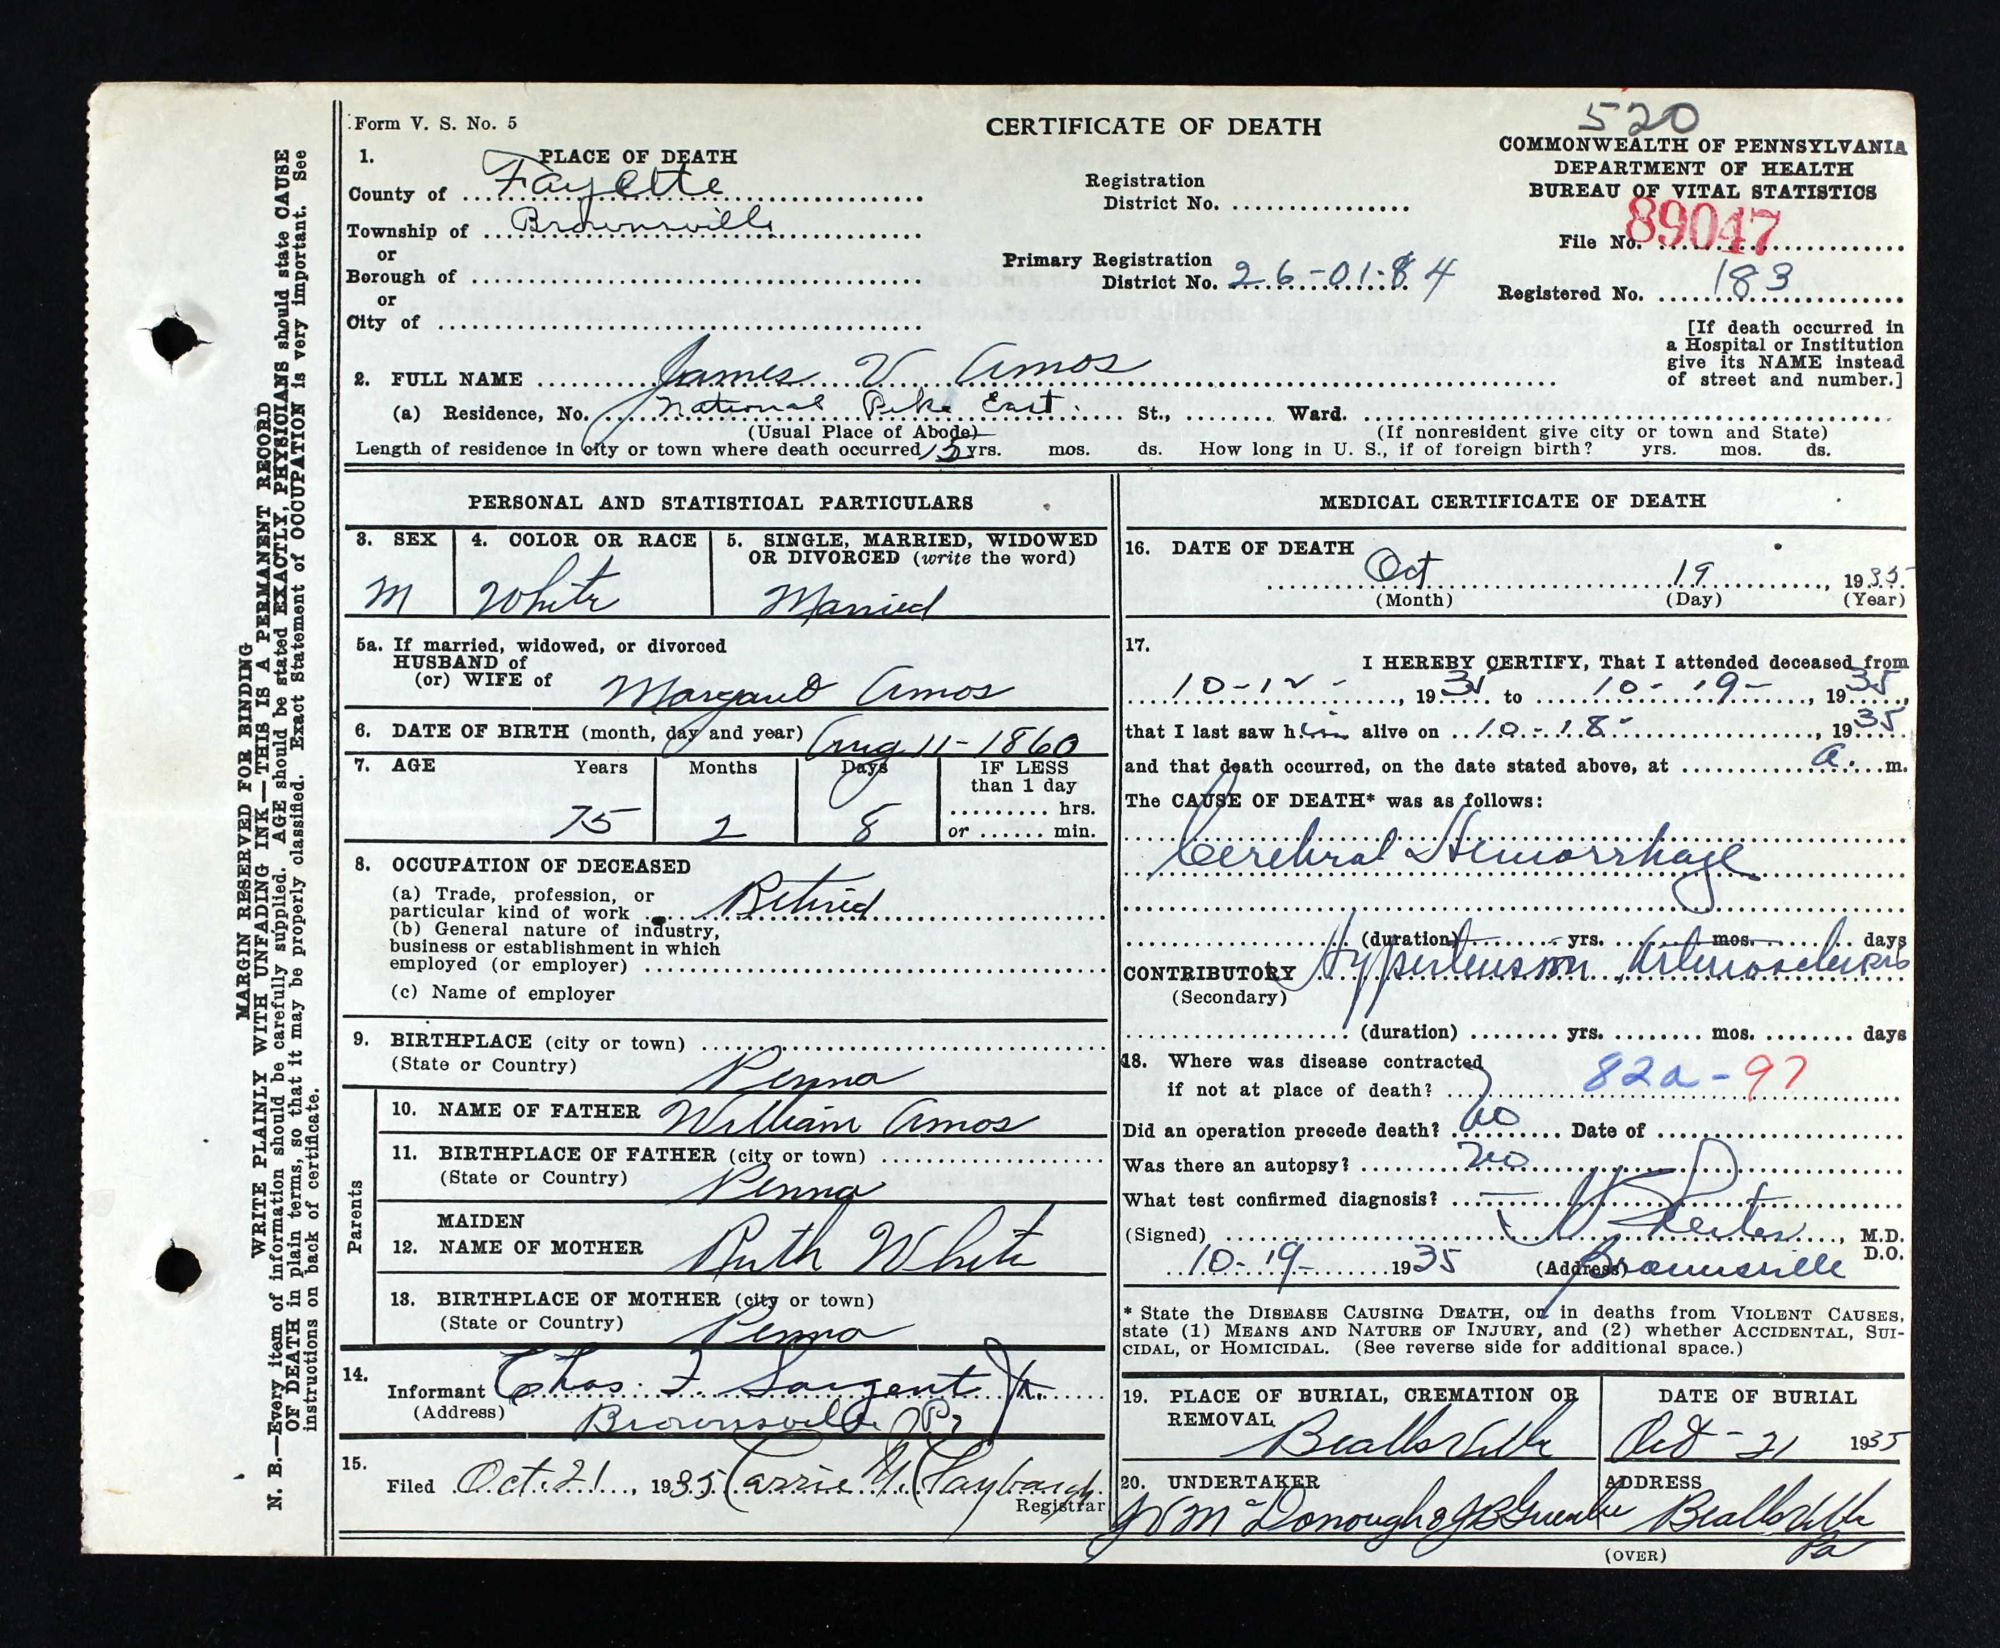 520
Form V. S. No. 5
CERTIFICATE OF DEATH
COMMONWEALTH OF PENNSYLVANIA
DEPARTMENT OF HEALTH
BUREAU OF VITAL STATISTICS
1. PLACE OF DEATH
County of Fayette
Township of Brownsville
or
Borough of
or
City of
Registration
District No.
Primary Registration
District No. 26-01-84
File No. 89047
Registered No. 183
[If death occurred in
a Hospital or Institution
give its NAME instead
of street and number.]
2. FULL NAME James V Amos
(a) Residence, No. National Pike East St., Ward.
(Usual Place of Abode) (If nonresident give city or town and State)
Length of residence in city or town where death occurred 15 yrs. mos. ds. How long in U. S., if of foreign birth? yrs. mos. ds.
PERSONAL AND STATISTICAL PARTICULARS
3. SEX
M
4. COLOR OR RACE
White
5. SINGLE, MARRIED, WIDOWED
OR DIVORCED (write the word)
Married
5a. If married, widowed, or divorced
HUSBAND of
(or) WIFE of Margaret Amos
6. DATE OF BIRTH (month, day and year) Aug 11-1860
7. AGE Years Months Days IF LESS
than 1 day
hrs.
or min.
75 2 8
8. OCCUPATION OF DECEASED
(a) Trade, profession, or
particular kind of work Retired
(b) General nature of industry,
business or establishment in which
employed (or employer)
(c) Name of employer
9. BIRTHPLACE (city or town)
(State or Country) Penna
Parents
10. NAME OF FATHER William Amos
11. BIRTHPLACE OF FATHER (city or town)
(State or Country) Penna
12. MAIDEN
NAME OF MOTHER Ruth White
13. BIRTHPLACE OF MOTHER (city or town)
(State or Country) Penna
14. Informant Chas. F Sargent Jr.
(Address) Brownsville Pa
15. Filed Oct. 21, 1935 Carrie
Registrar
MEDICAL CERTIFICATE OF DEATH
16. DATE OF DEATH
Oct 19, 1935
(Month) (Day) (Year)
17. I HEREBY CERTIFY, That I attended deceased from
10-12-, 1935 to 10-19-, 1935,
that I last saw him alive on 10-18-, 1935
and that death occurred, on the date stated above, at a. m.
The CAUSE OF DEATH* was as follows:
Cerebral Hemorrhage
(duration) yrs. mos. days
CONTRIBUTORY Hypertension, Arteriosclerosis
(Secondary)
(duration) yrs. mos. days
18. Where was disease contracted
if not at place of death?
82a-97
Did an operation precede death? no Date of
Was there an autopsy? no
What test confirmed diagnosis? —
(Signed) M.D.
D.O.
10-19- 1935 (Address) Brownsville
* State the DISEASE CAUSING DEATH, or in deaths from VIOLENT CAUSES,
state (1) MEANS AND NATURE OF INJURY, and (2) whether ACCIDENTAL, SUI-
CIDAL, or HOMICIDAL. (See reverse side for additional space.)
19. PLACE OF BURIAL, CREMATION OR
REMOVAL
Beallsville
DATE OF BURIAL
Oct-21 1935
20. UNDERTAKER
McDonough & J B Greenlee
ADDRESS
Beallsville
Pa
(OVER)
MARGIN RESERVED FOR BINDING
WRITE PLAINLY WITH UNFADING INK—THIS IS A PERMANENT RECORD
N. B.—Every item of information should be carefully supplied. AGE should be stated EXACTLY, PHYSICIANS should state CAUSE
OF DEATH in plain terms, so that it may be properly classified. Exact Statement of OCCUPATION is very important. See
instructions on back of certificate.